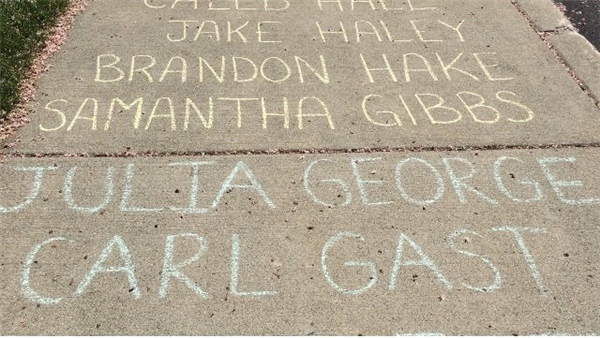 CALEB HALL
JAKE HALEY
BRANDON HAKE
SAMANTHA GIBBS
JULIA GEORGE
CARL GAST